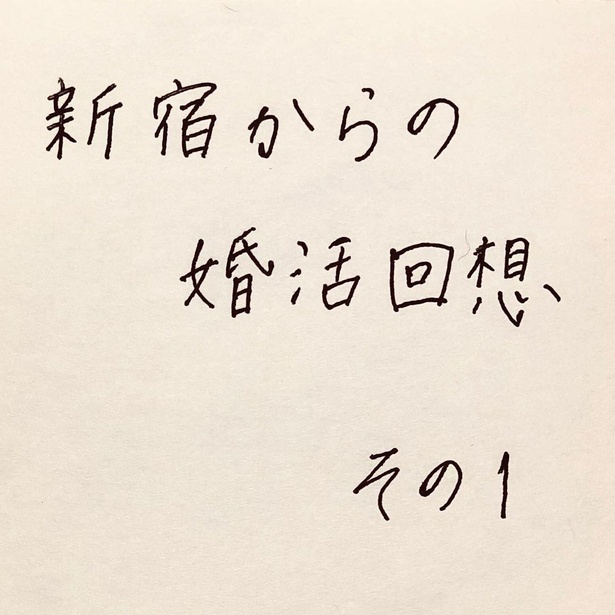 新宿からの
婚活回想
その1